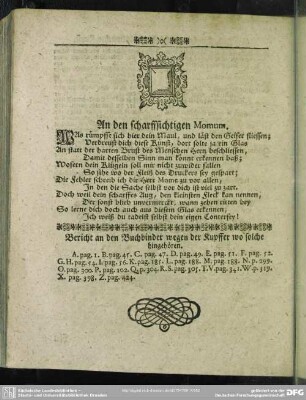 An den scharffsichtigen Momum,
WAs rümpffst sich hier dein Maul, und läst den Geiffer fliessen;
Verdreust dich diese Kunst, dort solte ja ein Glas
An statt der harten Brust des Menschen Hertz beschliessen,
Damit desselben Sinn man könnt erkennen baß;
Wofern dein Klügeln soll mir nicht zuwider fallen
So sihe was der Fleiß des Druckers sey gespart;
Die Fehler schreib ich dir Herr Mome zu vor allen;
In den die Sache selbst vor dich ist viel zu zart.
Doch weil dein scharffes Aug, den kleinsten Fleck kan nennen,
Der sonst blieb unvermerckt, wann geben einen boy
So lerne dich doch auch aus diesem Glas erkennen,
Ich weiß du tadelst selbst dein eigen Conterfey!
Bericht an den Buchbinder wegen der Kupffer wo solche
hingehören.
A. pag. 1. B. pag. 45. C. pag. 47. D. pag. 49. E. pag. 51. F. pag. 52.
G. H. pag. 54. I. pag. 56. K. pag. 181. L. pag. 182. M. pag. 188. N. p. 299.
O. pag. 300. P. pag. 302. Q. p. 304. R. S. pag. 305. T. V. pag. 341. W. p. 319.
X. pag. 398. Z. pag. 424.